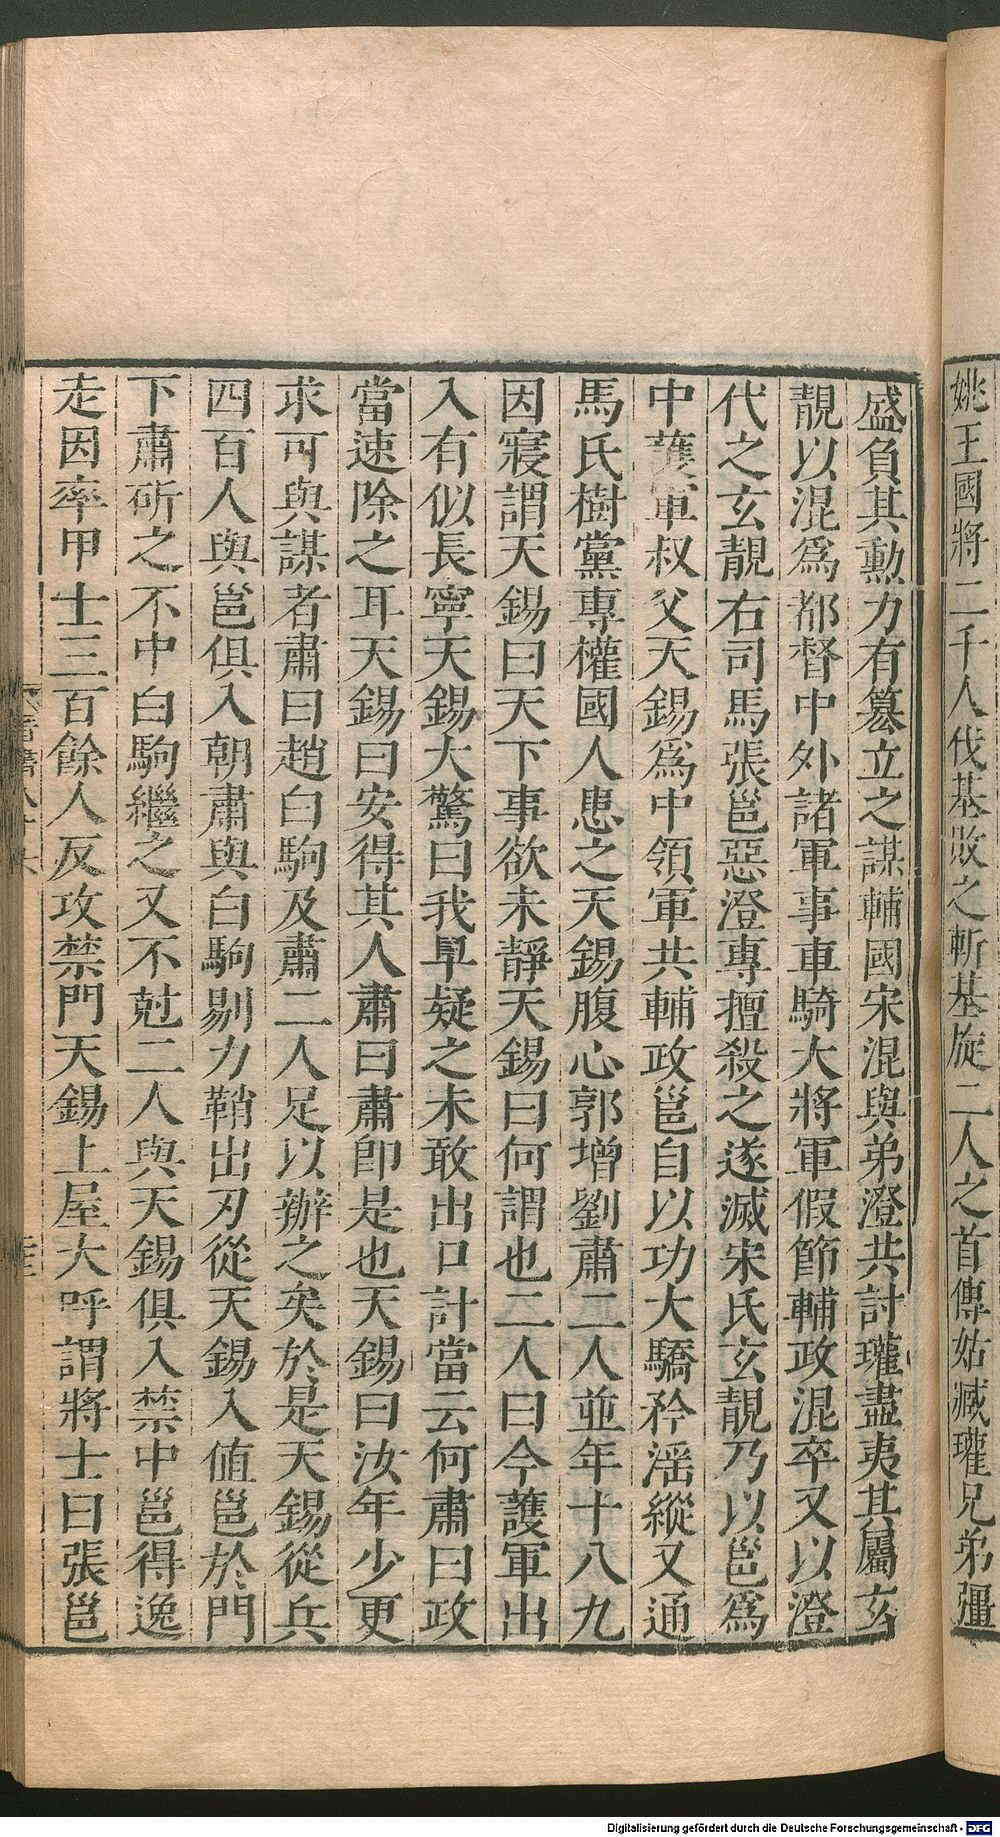 姚王國將二千人伐基敗之斬基旋二人之首傳姑臧瓘兄弟彊
盛負其勳力有篡立之謀輔國宋混與弟澄共討瓘盡夷其屬玄
靚以混爲都督中外諸軍事車騎大將軍假節輔政混卒又以澄
代之玄靚右司馬張邕惡澄專擅殺之遂滅宋氏玄靚乃以邕爲
中護軍叔父天錫爲中領軍共輔政邕自以功大驕矜滛縱又通
馬氏樹黨專權國人患之天錫腹心郭增劉肅二人並年十八九
因寢謂天錫曰天下事欲未靜天錫曰何謂也二人曰今護軍出
入有似長寧天錫大驚曰我早疑之未敢出口計當云何肅曰政
當速除之耳天錫曰安得其人肅曰肅卽是也天錫曰汝年少更
求可與謀者肅曰趙白駒及肅二人足以辦之矣於是天錫從兵
四百人與邕俱入朝肅與白駒剔刀鞘出刃從天錫入值邕於門
下肅斫之不中白駒繼之又不尅二人與天錫俱入禁中邕得逸
走因率甲士三百餘人反攻禁門天錫上屋大呼謂將士曰張邕
Digitalisierung gefördert durch die Deutsche Forschungsgemeinschaft - DFG